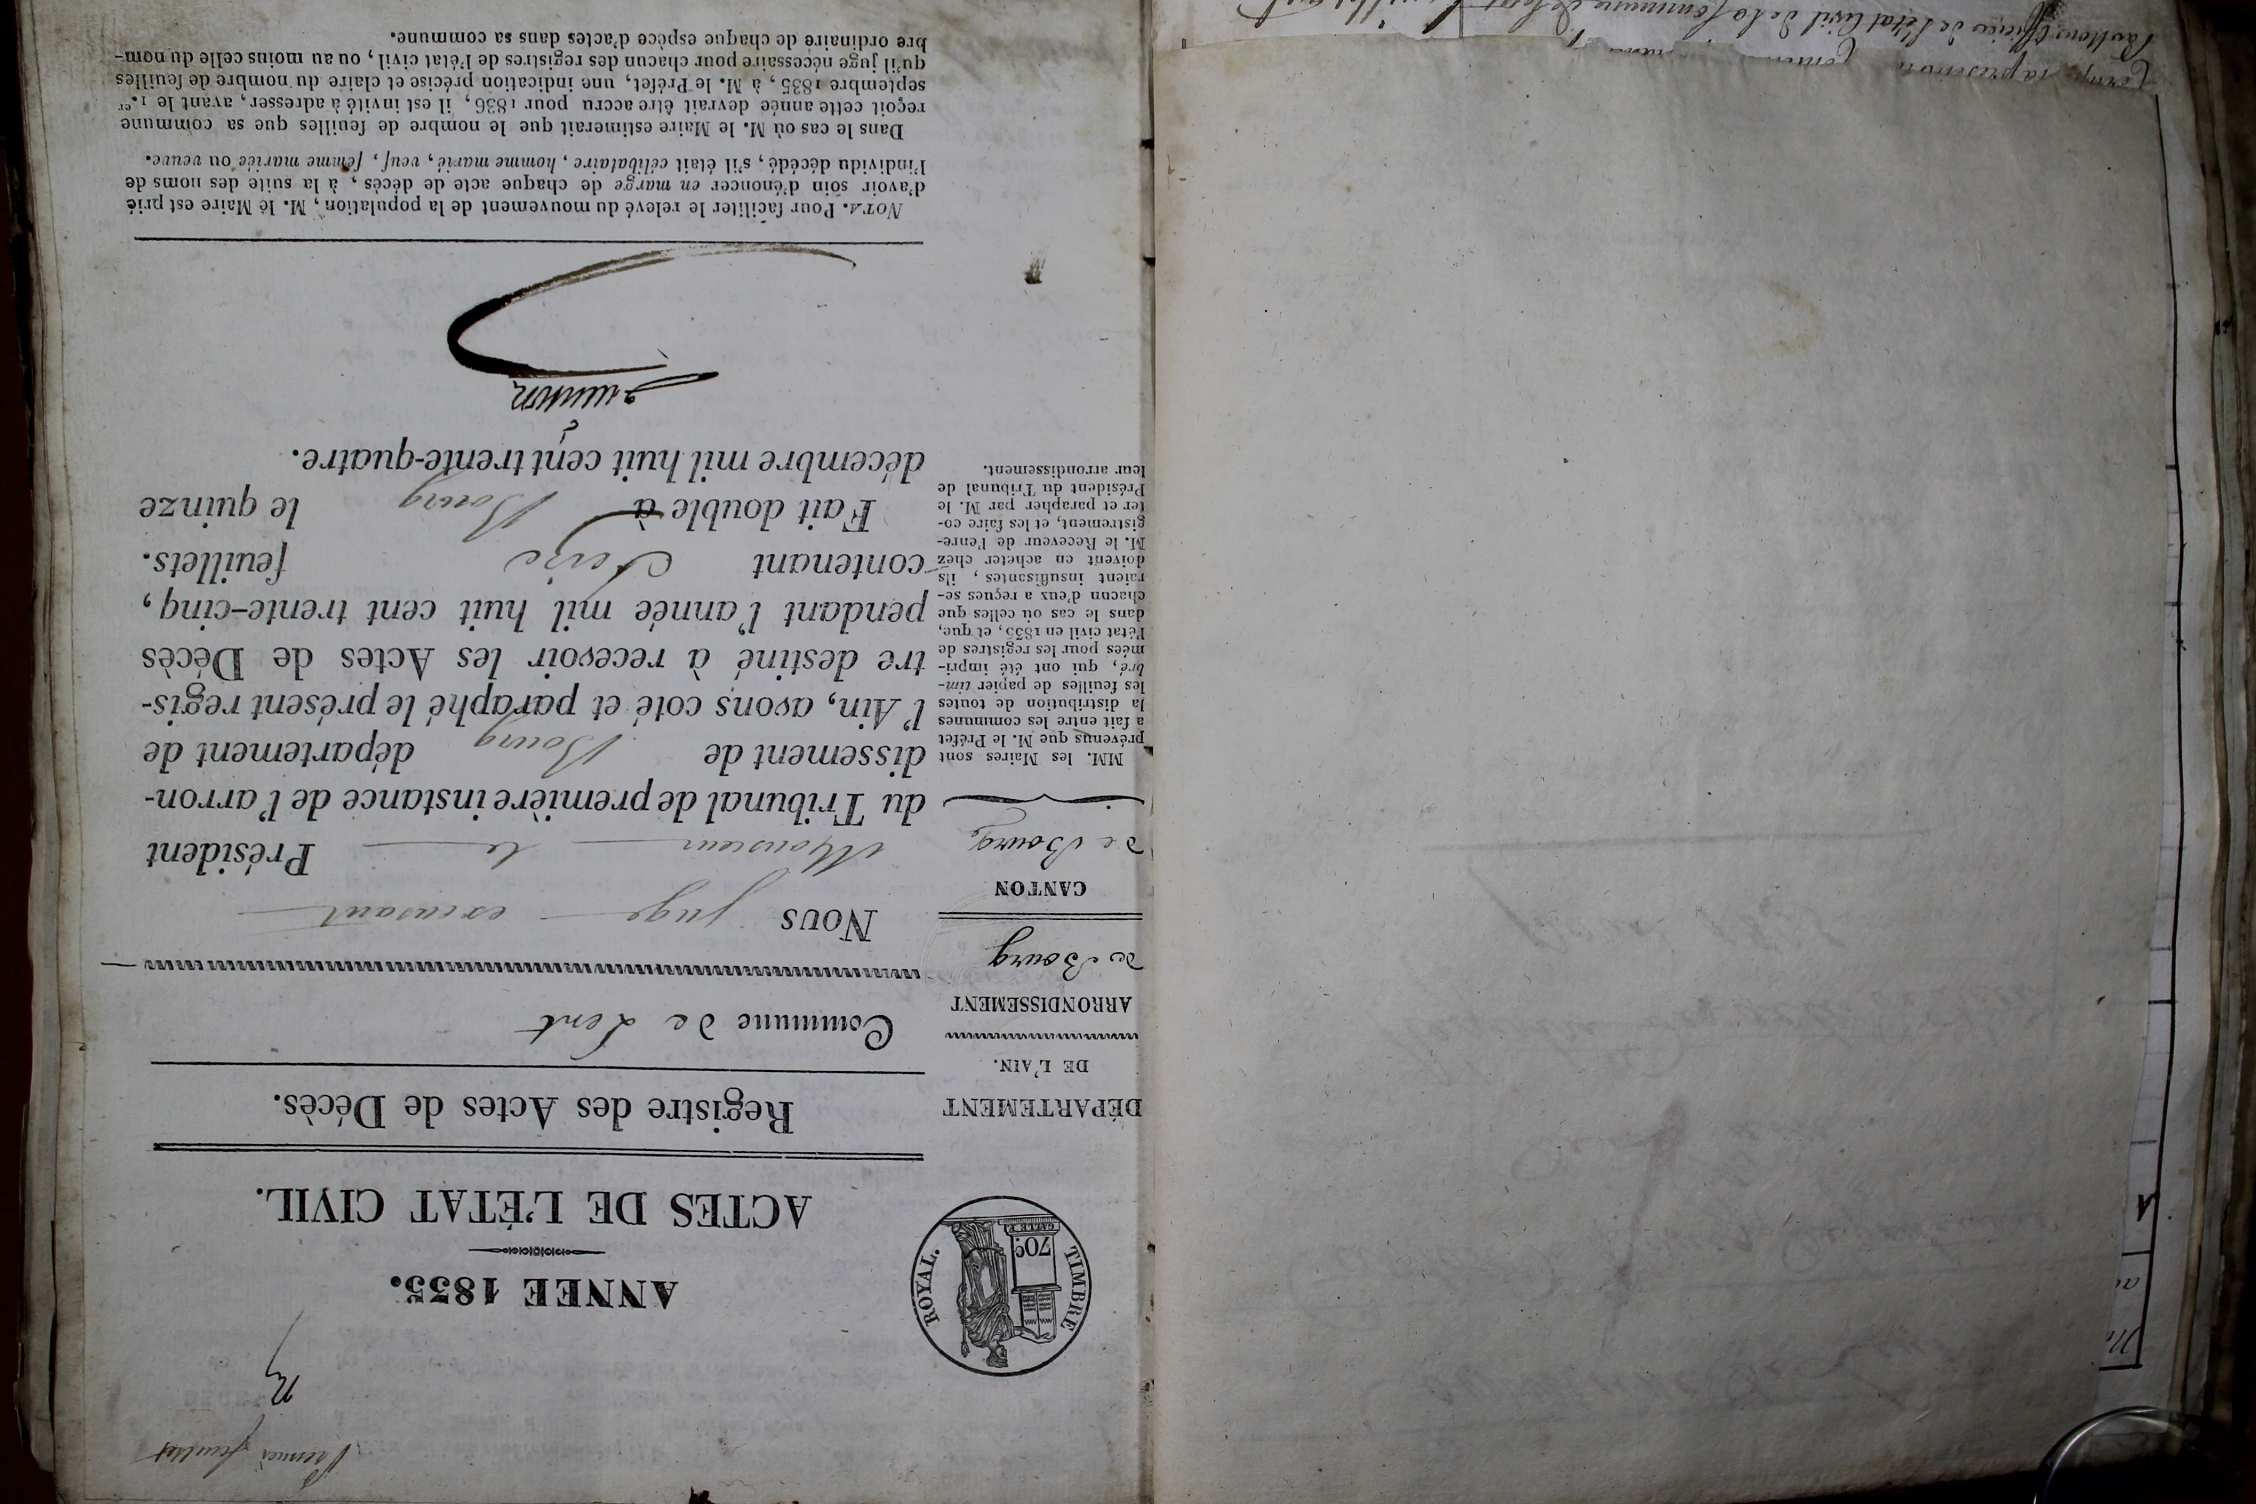 Premier feuillet
ANNEE 1835.
ACTES DE L'ÉTAT CIVIL.
TIMBRE ROYAL.
70c.
DÉPARTEMENT
DE L'AIN.
ARRONDISSEMENT
de Bourg
CANTON
de Bourg
MM. les Maires sont
prévenus que M. le Préfet
a fait entre les communes
la distribution de toutes
les feuilles de papier tim-
bré, qui ont été impri-
mées pour les registres de
l'état civil en 1835, et que,
dans le cas où celles que
chacun d'eux a reçues se-
raient insuffisantes, ils
doivent en acheter chez
M. le Receveur de l'enre-
gistrement, et les faire co-
ter et parapher par M. le
Président du Tribunal de
leur arrondissement.
Registre des Actes de Décès.
Commune de Lent
NOUS juge
Monsieur le Président
du Tribunal de première instance de l'arron-
dissement de Bourg département de
l'Ain, avons coté et paraphé le présent regis-
tre destiné à recevoir les Actes de Décès
pendant l'année mil huit cent trente-cinq,
contenant Seize feuillets.
Fait double à Bourg le quinze
décembre mil huit cent trente-quatre.
NOTA. Pour faciliter le relevé du mouvement de la population, M. le Maire est prié
d'avoir soin d'énoncer en marge de chaque acte de décès, à la suite des noms de
l'individu décédé, s'il était célibataire, homme marié, veuf, femme mariée ou veuve.
Dans le cas où M. le Maire estimerait que le nombre de feuilles que sa commune
reçoit cette année devrait être accru pour 1836, il est invité à adresser, avant le 1.er
septembre 1835, à M. le Préfet, une indication précise et claire du nombre de feuilles
qu'il juge nécessaire pour chacun des registres de l'état civil, ou au moins celle du nom-
bre ordinaire de chaque espèce d'actes dans sa commune.
officier de l'état Civil de la Commune de Lent